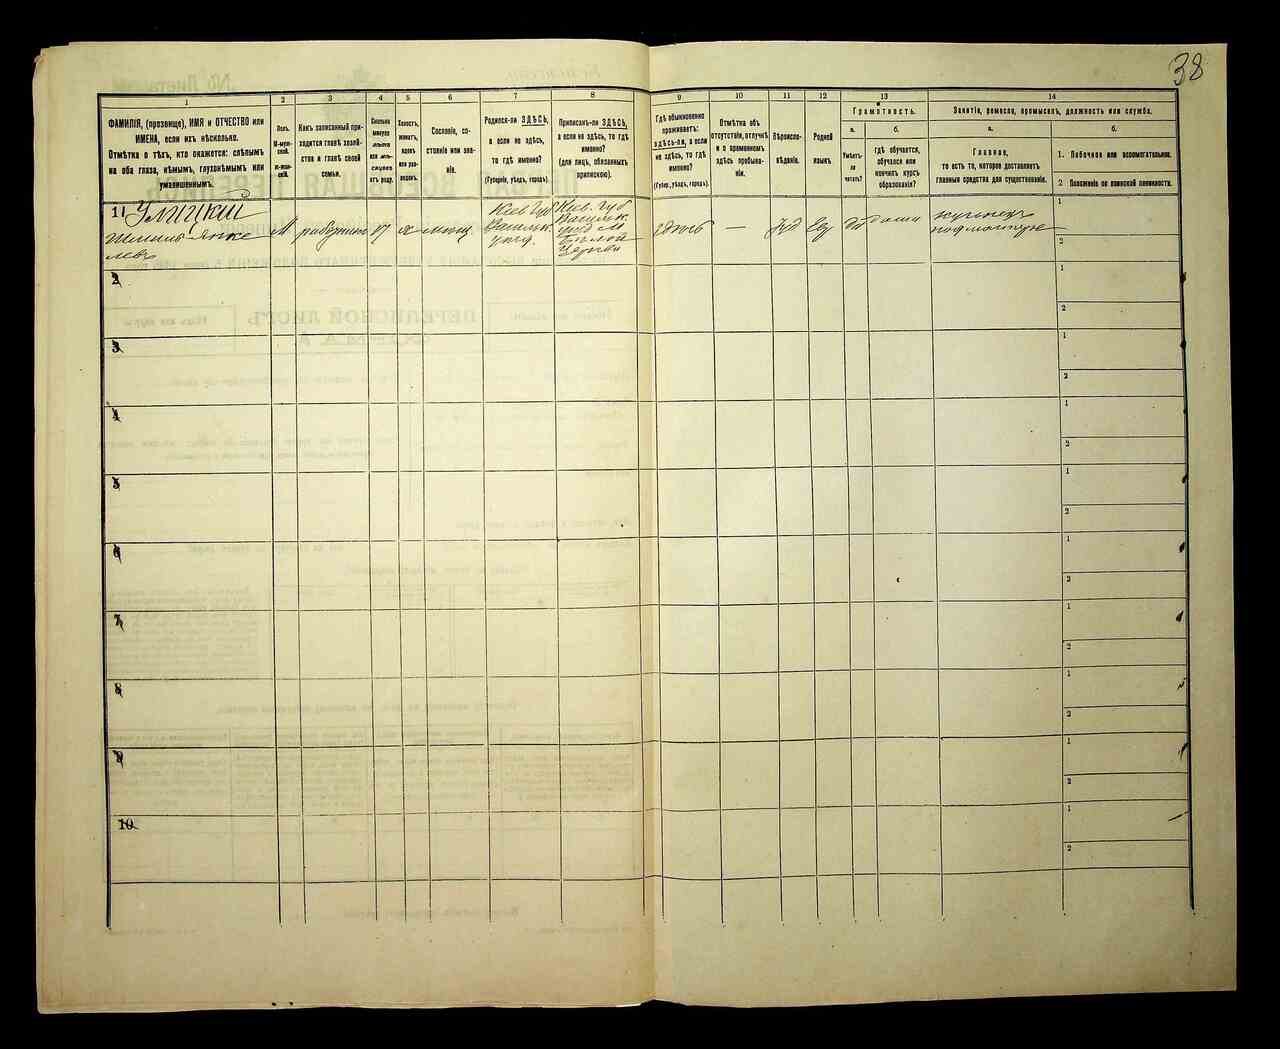 38
1
2
3
4
5
6
7
8
9
10
11
12
13
14
ФАМИЛІЯ, (прозвище), ИМЯ и ОТЧЕСТВО или
ИМЕНА, если ихъ нѣсколько.
Отмѣтка о тѣхъ, кто окажется: слѣпымъ
на оба глаза, нѣмымъ, глухонѣмымъ или
умалишеннымъ.
Полъ.
М-муж-
ской.
Ж-жен-
скій.
Какъ записанный при-
ходится главѣ хозяй-
ства и главѣ своей
семьи.
Сколько
минуло
лѣтъ
или мѣ-
сяцевъ
отъ роду.
Холостъ,
женатъ,
вдовъ
или раз-
веденъ.
Сословіе, со-
стояніе или зва-
ніе.
Родился-ли ЗДѢСЬ,
а если не здѣсь,
то гдѣ именно?
(Губернія, уѣздъ, городъ).
Приписанъ-ли ЗДѢСЬ,
а если не здѣсь, то гдѣ
именно?
(для лицъ, обязанныхъ
припискою).
Гдѣ обыкновенно
проживаетъ:
здѣсь-ли, а если
не здѣсь, то гдѣ
именно?
(Губер., уѣздъ, городъ).
Отмѣтка объ
отсутствіи, отлучкѣ
и о временномъ
здѣсь пребыва-
ніи.
Вѣроиспо-
вѣданіе.
Родной
языкъ.
Грамотность.
а.
б.
Умѣетъ-
ли
читать?
Гдѣ обучается,
обучался или
кончилъ курсъ
образованія?
Занятіе, ремесло, промыселъ, должность или служба.
а.
б.
Главное,
то есть то, которое доставляетъ
главныя средства для существованія.
1. Побочное или вспомогательное.
2 Положеніе по воинской повинности.
11 Улицкій
Янке
левъ
М
17
х
мѣщ.
Кіев Губ
Васильк.
уѣзд.
Кіев. Губ
Васильк.
уѣзд М
Бѣлой
Церкви
здѣсь
—
Іуд
Евр
да
дома
1
2
2
1
2
3
1
2
4
1
2
5
1
2
6
1
2
7
1
2
8
1
2
9
1
2
10
1
2